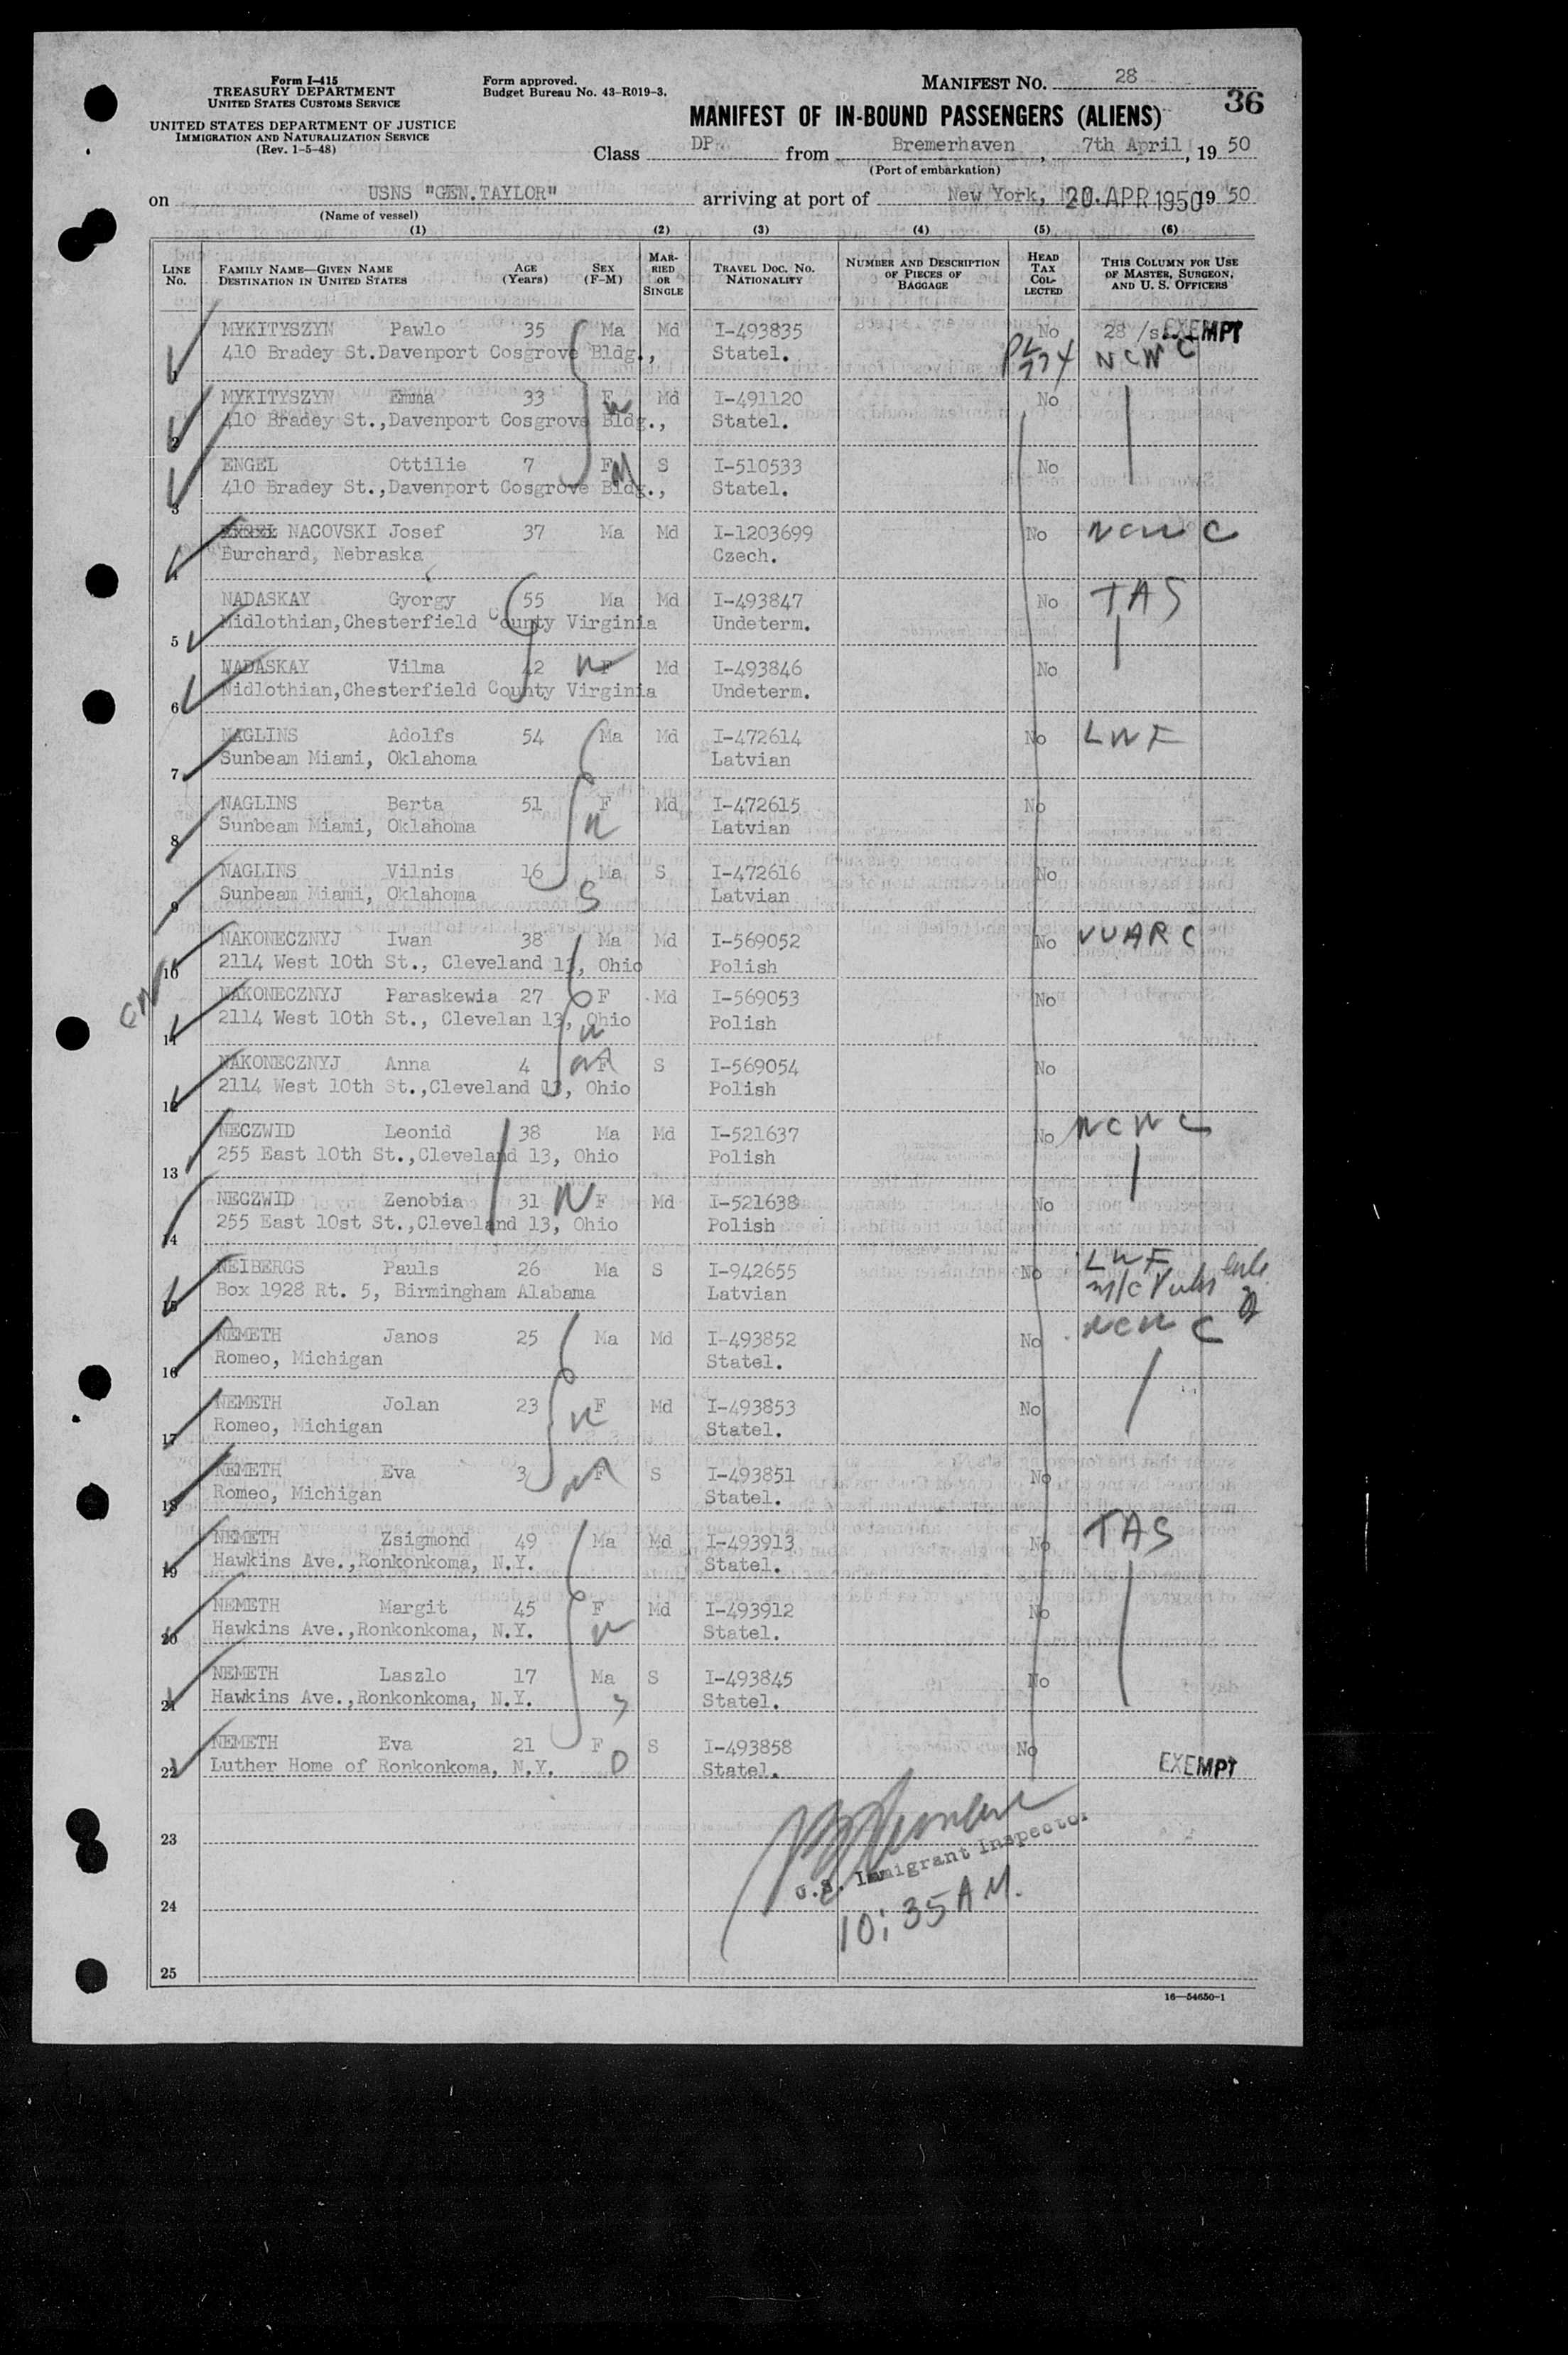 Form I-415
TREASURY DEPARTMENT
UNITED STATES CUSTOMS SERVICE
UNITED STATES DEPARTMENT OF JUSTICE
IMMIGRATION AND NATURALIZATION SERVICE
(Rev. 1-5-48)
Form approved.
Budget Bureau No. 43-R019-3.
MANIFEST NO. 28
36
MANIFEST OF IN-BOUND PASSENGERS (ALIENS)
Class DP. from Bremerhaven, 7th April, 1950
(Port of embarkation)
on USNS "GEN.TAYLOR" arriving at port of New York, 20.APR 1950 1950
(Name of vessel)
(1) (2) (3) (4) (5) (6)
LINE No. FAMILY NAME—GIVEN NAME DESTINATION IN UNITED STATES AGE (Years) SEX (F-M) MARRIED OR SINGLE TRAVEL DOC. NO. NATIONALITY NUMBER AND DESCRIPTION OF PIECES OF BAGGAGE HEAD TAX COLLECTED THIS COLUMN FOR USE OF MASTER, SURGEON, AND U. S. OFFICERS
MYKITYSZYN Pawlo 35 Ma Md I-493835 No 28 /s EXEMPT
1 410 Bradey St.Davenport Cosgrove Bldg., Statel. PL 774 NCWC
MYKITYSZYN Emma 33 F Md I-491120 No
2 410 Bradey St.,Davenport Cosgrove Bldg., Statel.
ENGEL Ottilie 7 F S I-510533 No
3 410 Bradey St.,Davenport Cosgrove Bldg., Statel.
NACOVSKI Josef 37 Ma Md I-1203699 No NCWC
4 Burchard, Nebraska Czech.
NADASKAY Gyorgy 55 Ma Md I-493847 No TAS
5 Midlothian,Chesterfield County Virginia Undeterm.
NADASKAY Vilma 42 F Md I-493846 No
6 Nidlothian,Chesterfield County Virginia Undeterm.
NAGLINS Adolfs 54 Ma Md I-472614 No LWF
7 Sunbeam Miami, Oklahoma Latvian
NAGLINS Berta 51 F Md I-472615 No
8 Sunbeam Miami, Oklahoma Latvian
NAGLINS Vilnis 16 Ma S I-472616 No
9 Sunbeam Miami, Oklahoma S Latvian
NAKONECZNYJ Iwan 38 Ma Md I-569052 No UUARC
10 2114 West 10th St., Cleveland 13, Ohio Polish
NAKONECZNYJ Paraskewia 27 F Md I-569053 No
11 2114 West 10th St., Clevelan 13, Ohio Polish
NAKONECZNYJ Anna 4 F S I-569054 No
12 2114 West 10th St.,Cleveland 13, Ohio Polish
NECZWID Leonid 38 Ma Md I-521637 No NCWC
13 255 East 10th St.,Cleveland 13, Ohio Polish
NECZWID Zenobia 31 F Md I-521638 No
14 255 East 10st St.,Cleveland 13, Ohio Polish
NEIBERGS Pauls 26 Ma S I-942655 No LWF
15 Box 1928 Rt. 5, Birmingham Alabama Latvian
NEMETH Janos 25 Ma Md I-493852 No NCWC
16 Romeo, Michigan Statel.
NEMETH Jolan 23 F Md I-493853 No
17 Romeo, Michigan Statel.
NEMETH Eva 3 F S I-493851 No
18 Romeo, Michigan Statel.
NEMETH Zsigmond 49 Ma Md I-493913 No TAS
19 Hawkins Ave.,Ronkonkoma, N.Y. Statel.
NEMETH Margit 45 F Md I-493912 No
20 Hawkins Ave.,Ronkonkoma, N.Y. Statel.
NEMETH Laszlo 17 Ma S I-493845 No
21 Hawkins Ave.,Ronkonkoma, N.Y. Statel.
NEMETH Eva 21 F S I-493858 No
22 Luther Home of Ronkonkoma, N.Y. D Statel. EXEMPT
23
U.S. Immigrant Inspector
24 10:35 AM.
25
16—54650-1